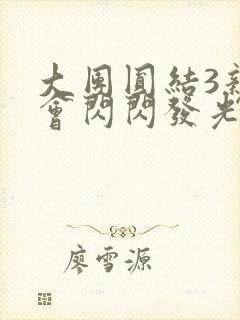 大團圓結3新
會閃閃發光
廖雪源